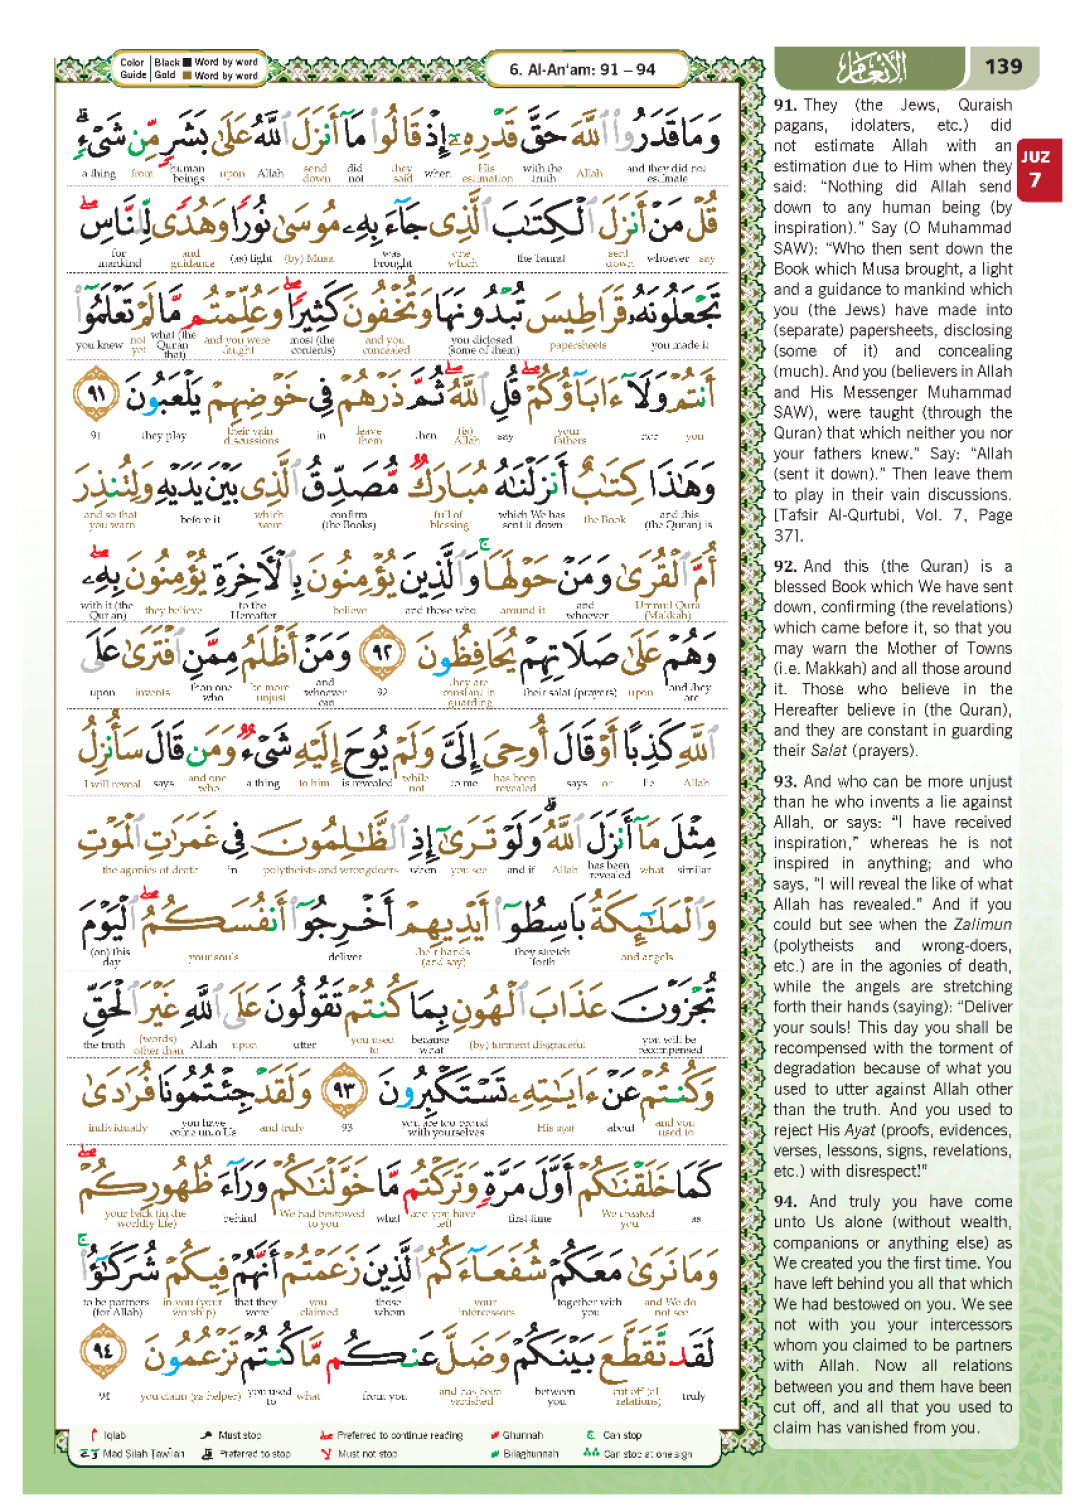 Color Guide | Black ■ Word by word
Gold ■ Word by word
6. Al-An'am: 91 – 94
الأنعام
139
JUZ
7
وَمَا قَدَرُوا۟ ٱللَّهَ حَقَّ قَدْرِهِۦٓ إِذْ قَالُوا۟ مَآ أَنزَلَ ٱللَّهُ عَلَىٰ بَشَرٍ مِّن شَىْءٍ ۗ
a thing from human beings upon Allah send down did not they said when His estimation with the truth Allah and they did not estimate
قُلْ مَنْ أَنزَلَ ٱلْكِتَـٰبَ ٱلَّذِى جَآءَ بِهِۦ مُوسَىٰ نُورًا وَهُدًى لِّلنَّاسِ ۖ
for mankind and guidance (as) light (by) Musa was brought one which the Taurat sent down whoever say
تَجْعَلُونَهُۥ قَرَاطِيسَ تُبْدُونَهَا وَتُخْفُونَ كَثِيرًا ۖ وَعُلِّمْتُم مَّا لَمْ تَعْلَمُوٓا۟
you knew not yet what (the Quran that) and you were taught most (the contents) and you concealed you diclosed (some of them) papersheets you made it
أَنتُمْ وَلَآ ءَابَآؤُكُمْ ۖ قُلِ ٱللَّهُ ۖ ثُمَّ ذَرْهُمْ فِى خَوْضِهِمْ يَلْعَبُونَ ٩١
91 they play their vain discussions in leave them then (is) Allah say your fathers nor you
وَهَـٰذَا كِتَـٰبٌ أَنزَلْنَـٰهُ مُبَارَكٌ مُّصَدِّقُ ٱلَّذِى بَيْنَ يَدَيْهِ وَلِتُنذِرَ
and so that you warn before it which were confirm (the Books) full of blessing which We has sent it down the Book and this (the Quran) is
أُمَّ ٱلْقُرَىٰ وَمَنْ حَوْلَهَا ۚ وَٱلَّذِينَ يُؤْمِنُونَ بِٱلْـَٔاخِرَةِ يُؤْمِنُونَ بِهِۦ ۖ
with it (the Quran) they believe to the Hereafter believe and those who around it and whoever Ummul Qura (Makkah)
وَهُمْ عَلَىٰ صَلَاتِهِمْ يُحَافِظُونَ ٩٢ وَمَنْ أَظْلَمُ مِمَّنِ ٱفْتَرَىٰ عَلَى
upon invents than one who be more unjust and whoever can 92 they are constant in guarding their salat (prayers) upon and they are
ٱللَّهِ كَذِبًا أَوْ قَالَ أُوحِىَ إِلَىَّ وَلَمْ يُوحَ إِلَيْهِ شَىْءٌ وَمَن قَالَ سَأُنزِلُ
I will reveal says and one who a thing to him is revealed while not to me has been revealed says or lie Allah
مِثْلَ مَآ أَنزَلَ ٱللَّهُ ۗ وَلَوْ تَرَىٰٓ إِذِ ٱلظَّـٰلِمُونَ فِى غَمَرَٰتِ ٱلْمَوْتِ
the agonies of death in polytheists and wrongdoers when you see and if Allah has been revealed what similar
وَٱلْمَلَـٰٓئِكَةُ بَاسِطُوٓا۟ أَيْدِيهِمْ أَخْرِجُوٓا۟ أَنفُسَكُمُ ۖ ٱلْيَوْمَ
(on) this day your souls deliver their hands (and say) they stretch forth and angels
تُجْزَوْنَ عَذَابَ ٱلْهُونِ بِمَا كُنتُمْ تَقُولُونَ عَلَى ٱللَّهِ غَيْرَ ٱلْحَقِّ
the truth (words) other than Allah upon utter you used to because what (by) torment disgraceful you will be recompensed
وَكُنتُمْ عَنْ ءَايَـٰتِهِۦ تَسْتَكْبِرُونَ ٩٣ وَلَقَدْ جِئْتُمُونَا فُرَٰدَىٰ
individually you have come unto Us and truly 93 you are too proud with yourselves His ayat about and you used to
كَمَا خَلَقْنَـٰكُمْ أَوَّلَ مَرَّةٍ وَتَرَكْتُم مَّا خَوَّلْنَـٰكُمْ وَرَآءَ ظُهُورِكُمْ ۖ
your back (in the worldly life) behind We had bestowed to you what and you have left first time We created you as
وَمَا نَرَىٰ مَعَكُمْ شُفَعَآءَكُمُ ٱلَّذِينَ زَعَمْتُمْ أَنَّهُمْ فِيكُمْ شُرَكَـٰٓؤُا۟ ۚ
to be partners (for Allah) in you (your worship) that they were you claimed those whom your intercessors together with you and We do not see
لَقَد تَّقَطَّعَ بَيْنَكُمْ وَضَلَّ عَنكُم مَّا كُنتُمْ تَزْعُمُونَ ٩٤
94 you claim (as helper) you used to what from you and has been vanished between you cut off (all relations) truly
Iqlab Must stop Preferred to continue reading Ghunnah Can stop
Mad Silah Tawilah Preferred to stop Must not stop Bilaghunnah Can stop at one sign
91. They (the Jews, Quraish
pagans, idolaters, etc.) did
not estimate Allah with an
estimation due to Him when they
said: “Nothing did Allah send
down to any human being (by
inspiration).” Say (O Muhammad
SAW): “Who then sent down the
Book which Musa brought, a light
and a guidance to mankind which
you (the Jews) have made into
(separate) papersheets, disclosing
(some of it) and concealing
(much). And you (believers in Allah
and His Messenger Muhammad
SAW), were taught (through the
Quran) that which neither you nor
your fathers knew.” Say: “Allah
(sent it down).” Then leave them
to play in their vain discussions.
[Tafsir Al-Qurtubi, Vol. 7, Page
37].
92. And this (the Quran) is a
blessed Book which We have sent
down, confirming (the revelations)
which came before it, so that you
may warn the Mother of Towns
(i.e. Makkah) and all those around
it. Those who believe in the
Hereafter believe in (the Quran),
and they are constant in guarding
their Salat (prayers).
93. And who can be more unjust
than he who invents a lie against
Allah, or says: “I have received
inspiration,” whereas he is not
inspired in anything; and who
says, “I will reveal the like of what
Allah has revealed.” And if you
could but see when the Zalimun
(polytheists and wrong-doers,
etc.) are in the agonies of death,
while the angels are stretching
forth their hands (saying): “Deliver
your souls! This day you shall be
recompensed with the torment of
degradation because of what you
used to utter against Allah other
than the truth. And you used to
reject His Ayat (proofs, evidences,
verses, lessons, signs, revelations,
etc.) with disrespect!”
94. And truly you have come
unto Us alone (without wealth,
companions or anything else) as
We created you the first time. You
have left behind you all that which
We had bestowed on you. We see
not with you your intercessors
whom you claimed to be partners
with Allah. Now all relations
between you and them have been
cut off, and all that you used to
claim has vanished from you.